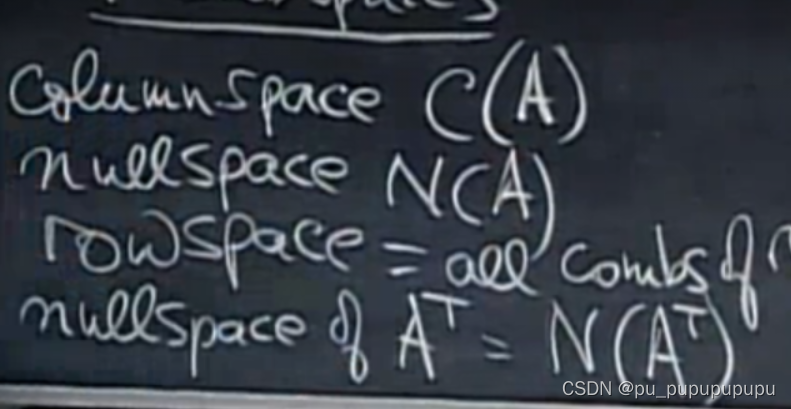 columnspace C(A)
nullspace N(A)
rowspace = all combs of
nullspace of Aᵀ = N(Aᵀ)
CSDN @pu_pupupupupu